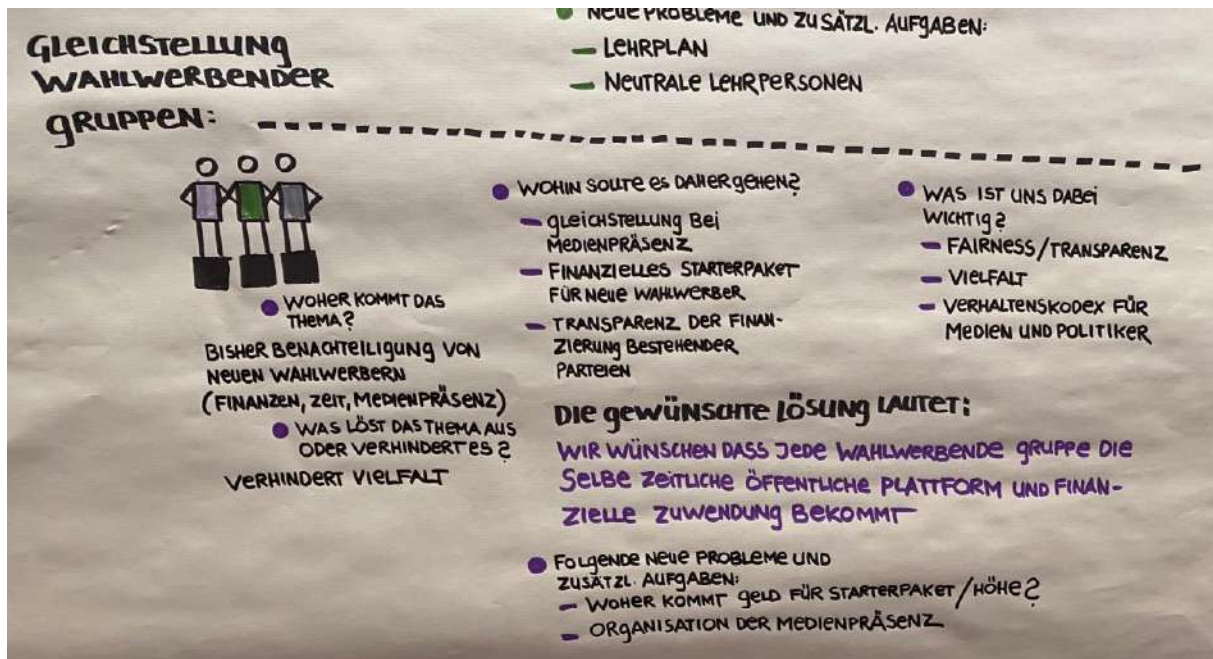 NEUE PROBLEME UND ZUSÄTZL. AUFGABEN:
– LEHRPLAN
– NEUTRALE LEHRPERSONEN
GLEICHSTELLUNG
WAHLWERBENDER
GRUPPEN:
WOHER KOMMT DAS
THEMA?
BISHER BENACHTEILIGUNG VON
NEUEN WAHLWERBERN
(FINANZEN, ZEIT, MEDIENPRÄSENZ)
WAS LÖST DAS THEMA AUS
ODER VERHINDERT ES?
VERHINDERT VIELFALT
WOHIN SOLLTE ES DAHER GEHEN?
– GLEICHSTELLUNG BEI
MEDIENPRÄSENZ
– FINANZIELLES STARTERPAKET
FÜR NEUE WAHLWERBER
– TRANSPARENZ DER FINAN-
ZIERUNG BESTEHENDER
PARTEIEN
WAS IST UNS DABEI
WICHTIG?
– FAIRNESS/TRANSPARENZ
– VIELFALT
– VERHALTENSKODEX FÜR
MEDIEN UND POLITIKER
DIE GEWÜNSCHTE LÖSUNG LAUTET:
WIR WÜNSCHEN DASS JEDE WAHLWERBENDE GRUPPE DIE
SELBE ZEITLICHE ÖFFENTLICHE PLATTFORM UND FINAN-
ZIELLE ZUWENDUNG BEKOMMT
FOLGENDE NEUE PROBLEME UND
ZUSÄTZL. AUFGABEN:
– WOHER KOMMT GELD FÜR STARTERPAKET/HÖHE?
– ORGANISATION DER MEDIENPRÄSENZ